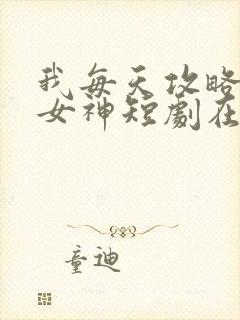 我每天攻略
女神短劇在
童迪